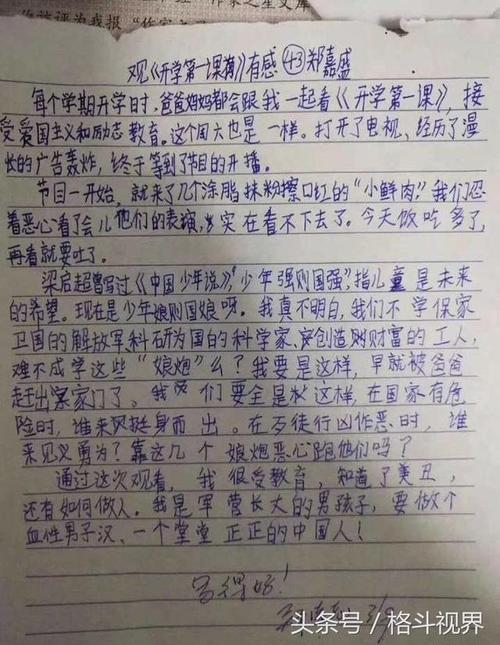 观《开学第一课》有感 43 郑嘉盛
每个学期开学日时,爸爸妈妈都会跟我一起看《开学第一课》,接
受爱国主义和励志教育。这个周六也是一样。打开了电视、经历了漫
长的广告轰炸,终于等到了节目的开播。
节目一开始,就来了几个涂脂抹粉擦口红的“小鲜肉”。我们忍
着恶心看了会儿他们的表演,实在看不下去了。今天饭吃多了,
再看就要吐了。
梁启超曾写过《中国少年说》,“少年强则国强”,指儿童是未来
的希望。现在是少年娘则国娘呀。我真不明白,我们不学保家
卫国的解放军科研为国的科学家、创造财富的工人,
难不成学这些“娘炮”么?我要是这样,早就被爸爸
赶出家门了。我们要全是这样,在国家有危
险时,谁来挺身而出。在歹徒行凶作恶时,谁
来见义勇为?靠这几个娘炮恶心跑他们吗?
通过这次观看,我很受教育,知道了美丑,
还有如何做人。我是军营长大的男孩子,要做个
血性男子汉、一个堂堂正正的中国人!
写得好!
3/9
头条号/格斗视界